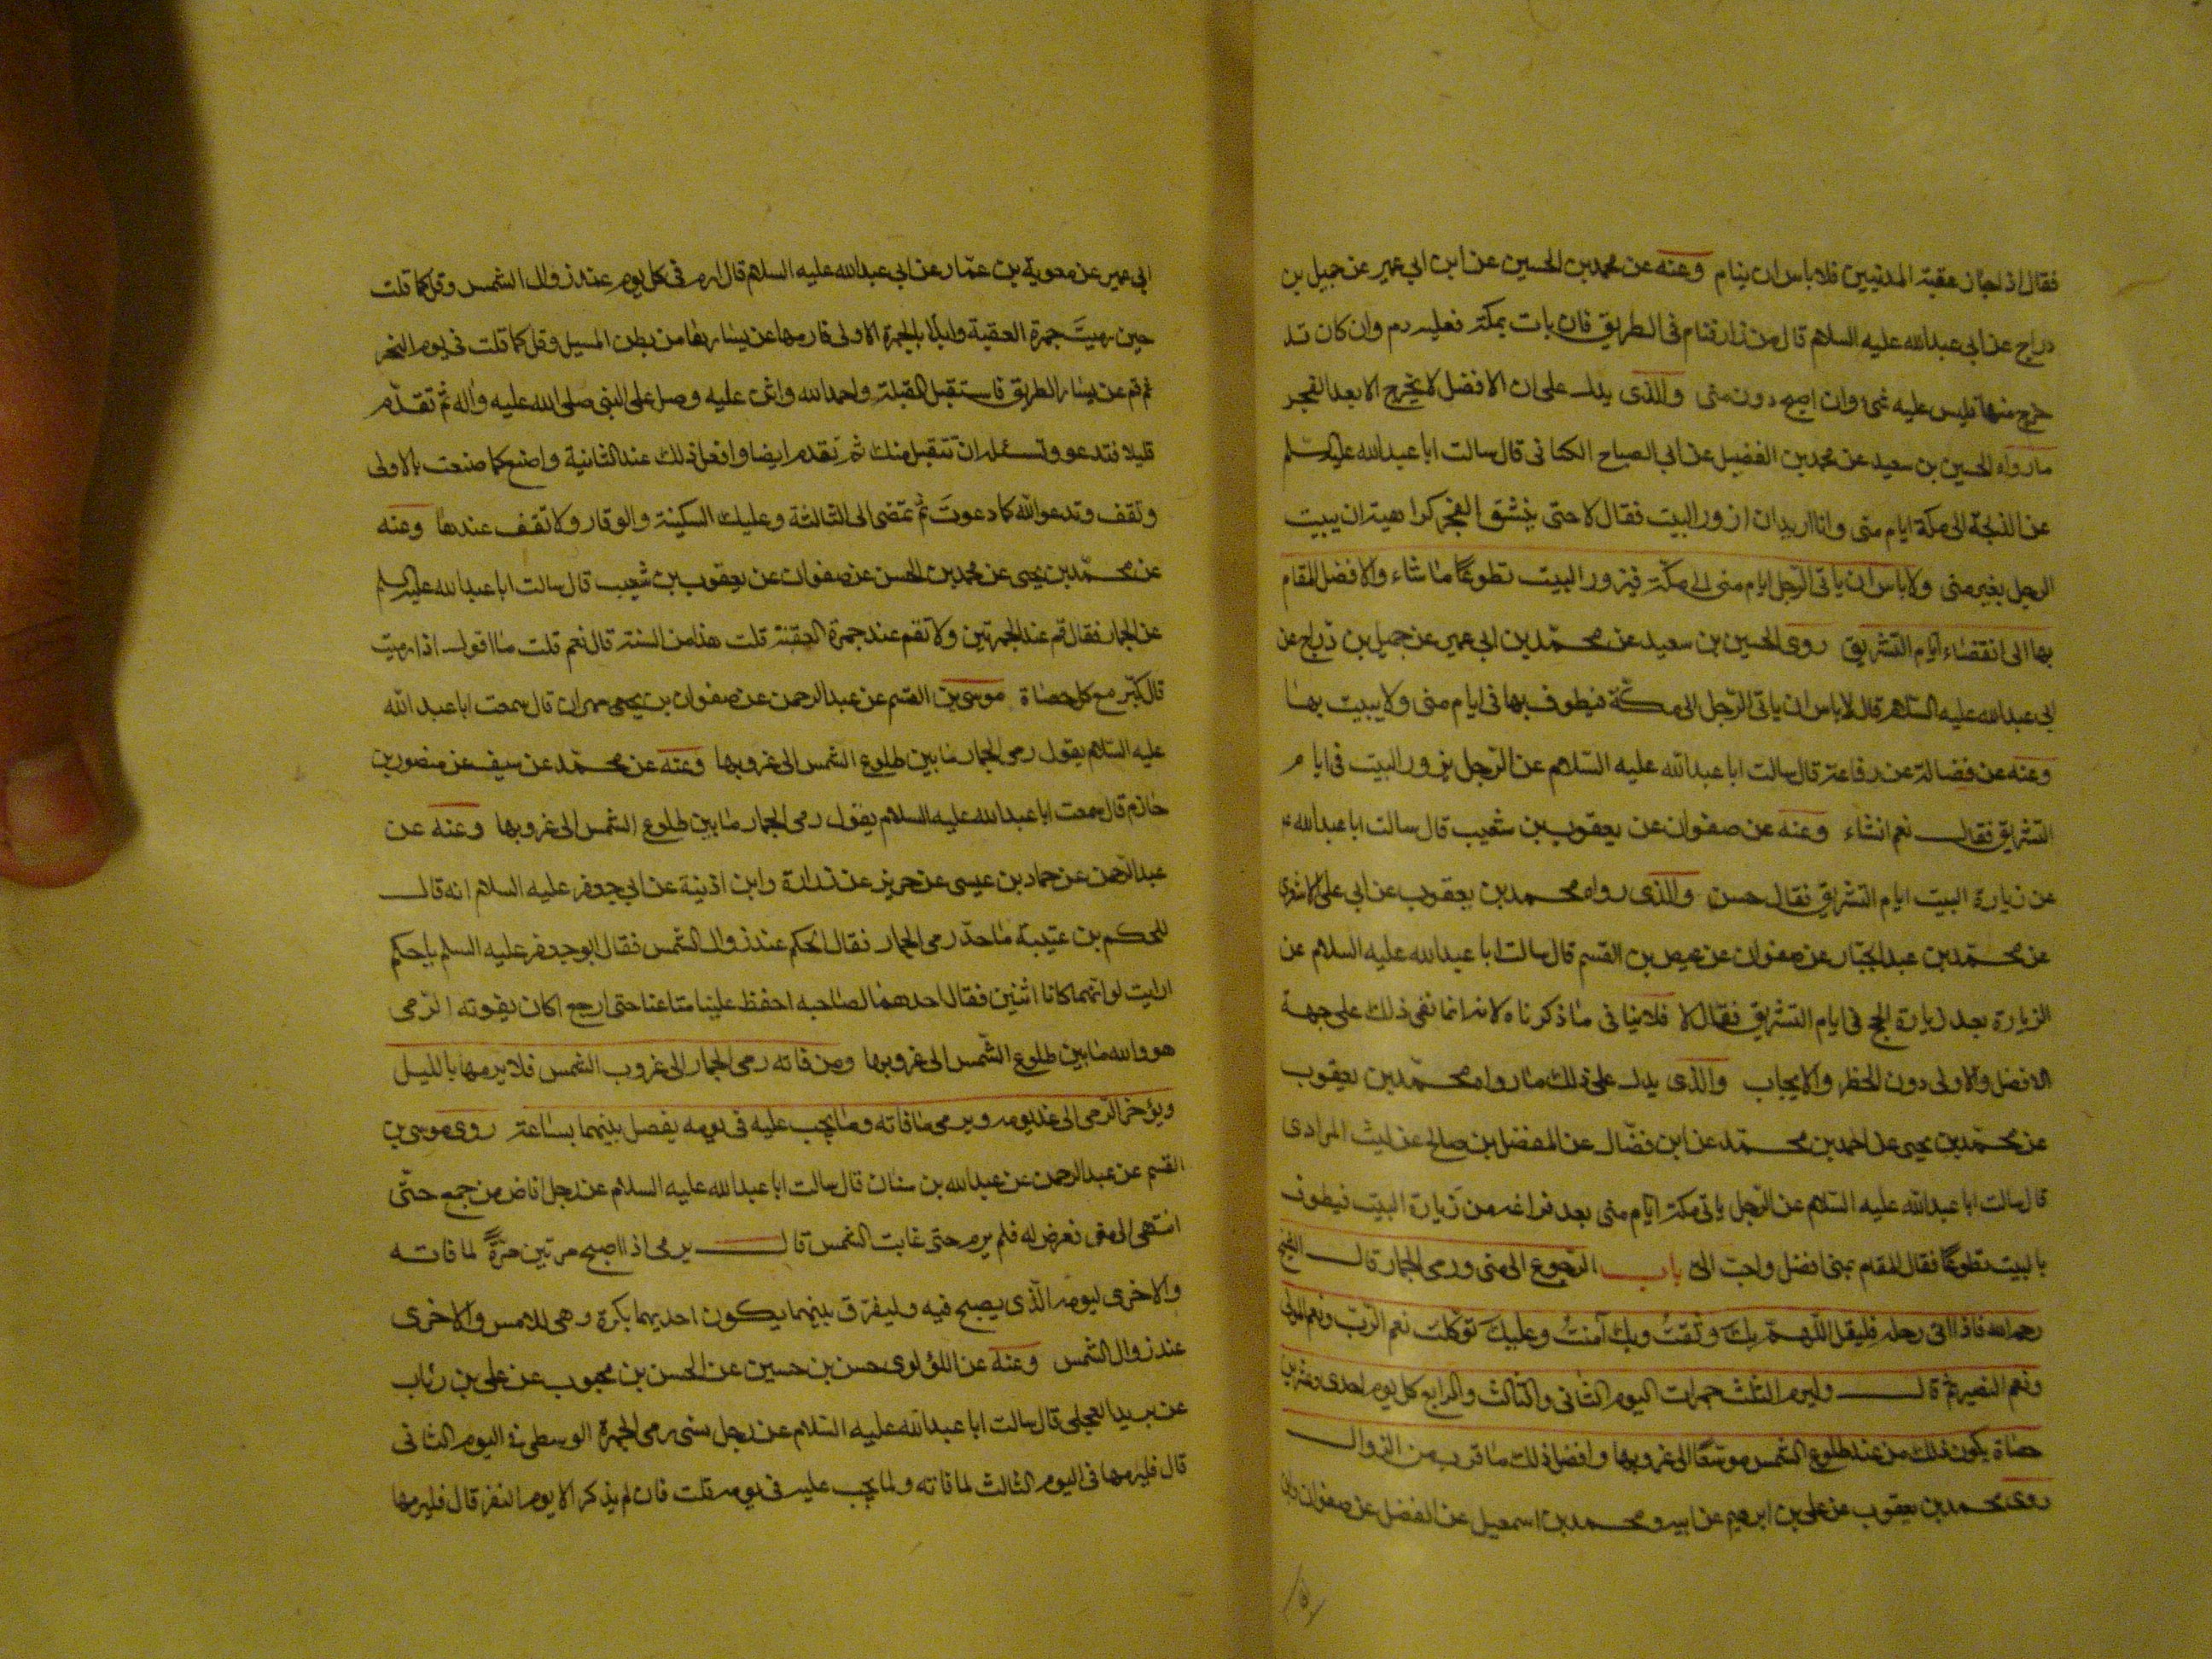 فقال اذا جاز عقبة المدنيين فلا باس ان ينام وعنه عن محمد بن الحسين عن ابن ابي عمير عن جميل بن
دراج عن ابي عبدالله عليه السلام قال من زار فنام فى الطريق فان بات بمكة فعليه دم وان كان قد
خرج منها فليس عليه شئ وان اصبح دون منى والذى يدل على ان الافضل لا يخرج الا بعد الفجر
ما رواه الحسين بن سعيد عن محمد بن الفضيل عن ابي الصباح الكنانى قال سالت ابا عبدالله عليه السلم
عن الدلجة الى مكة ايام منى وانا اريد ان ازور البيت فقال لا حتى ينشق الفجر كراهية ان يبيت
الرجل بغير منى ولا باس ان ياتى الرجل ايام منى الى مكة فيزور البيت تطوعًا ما شاء والافضل المقام
بها الى انقضاء ايام التشريق روى الحسين بن سعيد عن محمد بن ابي عمير عن جميل بن دراج عن
ابي عبدالله عليه السلام قال لا باس ان ياتى الرجل الى مكة فيطوف بها فى ايام منى ولا يبيت بها
وعنه عن فضالة عن رفاعة قال سالت ابا عبدالله عليه السلام عن الرجل يزور البيت فى ايام
التشريق فقال نعم انشاء وعنه عن صفوان عن يعقوب بن شعيب قال سالت ابا عبدالله ع
عن زيارة البيت ايام التشريق فقال حسن والذى رواه محمد بن يعقوب عن ابى على الاشعرى
عن محمد بن عبد الجبار عن صفوان عن عيص بن القسم قال سالت ابا عبدالله عليه السلام عن
الزيارة بعد زيارة الحج فى ايام التشريق فقال لا فلا ينافى ما ذكرناه لانه انما نفى ذلك على جهة
الافضل والاولى دون الحظر والايجاب والذى يدل على ذلك ما رواه محمد بن يعقوب
عن محمد بن يحيى عن احمد بن محمد عن ابن فضال عن المفضل بن صالح عن ليث المرادى
قال سالت ابا عبدالله عليه السلام عن الرجل ياتى مكة ايام منى بعد فراغه من زيارة البيت فيطوف
بالبيت تطوعًا فقال المقام بمنى افضل واحب الى باب الرجوع الى منى ورمى الجمار قال الشيخ
رحمه الله فاذا اتى رحله فليقل اللهم بك وثقتُ وبك آمنتُ وعليك توكلت نعم الرب ونعم المولى
ونعم النصير ثم قال وليرم الثلث جمرات اليوم الثانى والثالث والرابع كل يوم احدى وعشرين
حصاة يكون ذلك من عند طلوع الشمس موسعًا الى غروبها وافضل ذلك ما قرب من الزوال
روى محمد بن يعقوب عن على بن ابرهيم عن ابيه ومحمد بن اسمعيل عن الفضل عن صفوان وابن
ابي عمير عن معوية بن عمّار عن ابي عبدالله عليه السلام قال ارم فى كل يوم عند زوال الشمس وقل كما قلت
حين رميتَ جمرة العقبة وابدا بالجمرة الاولى فارمها عن يسارها من بطن المسيل وقل كما قلت فى يوم النحر
ثم قم عن يسار الطريق فاستقبل القبلة واحمد الله واثن عليه وصل على النبى صلى الله عليه وآله ثم تقدّم
قليلا فتدعو وتسئله ان يتقبل منك ثم تقدم ايضا وافعل ذلك عند الثانية واصنع كما صنعت بالاولى
وتقف وتدعو الله كما دعوتَ ثم تمضى الى الثالثة وعليك السكينة والوقار ولا تقف عندها وعنه
عن محمد بن يحيى عن محمد بن الحسن عن صفوان عن يعقوب بن شعيب قال سالت ابا عبدالله عليه السلم
عن الجمار فقال قم عند الجمرتين ولا تقم عند جمرة العقبة قلت هذا من السنة قال نعم قلت ما اقول اذا رميت
قال كبّر مع كل حصاة موسى بن القسم عن عبدالرحمن عن صفوان بن يحيى مهران قال سمعت ابا عبدالله
عليه السلام يقول رمى الجمار ما بين طلوع الشمس الى غروبها وعنه عن محمد عن سيف عن منصور بن
حازم قال سمعت ابا عبدالله عليه السلام يقول رمى الجمار ما بين طلوع الشمس الى غروبها وعنه عن
عبدالرحمن عن حماد بن عيسى عن حريز عن زرارة وابن اذينة عن ابي جعفر عليه السلام انه قال
للحكم بن عتيبة ما حدّ رمى الجمار فقال الحكم عند زوال الشمس فقال ابو جعفر عليه السلم يا حكم
ارايت لو انهما كانا اثنين فقال احدهما لصاحبه احفظ علينا متاعنا حتى ارجع اكان يفوته الرمى
هو والله ما بين طلوع الشمس الى غروبها ومن فاته رمى الجمار الى غروب الشمس فلا يرمها بالليل
ويؤخر الرمى الى غد يومه ويرمى ما فاته وما يجب عليه فى يومه يفصل بينهما بساعة روى موسى بن
القسم عن عبدالرحمن عن عبدالله بن سنان قال سالت ابا عبدالله عليه السلام عن رجل افاض من جمع حتّى
انتهى الى منى فعرض له فلم يرم حتى غابت الشمس قال يرمى اذا اصبح مرتين مرّةً لما فاته
والاخرى ليومه الّذى يصبح فيه وليفرق بينهما يكون احديهما بكرة وهى للامس والاخرى
عند زوال الشمس وعنه عن اللؤلوى حسن بن حسين عن الحسن بن محبوب عن على بن رئاب
عن بريد العجلى قال سالت ابا عبدالله عليه السلام عن رجل نسى رمى الجمرة الوسطى فى اليوم الثانى
قال فليرمها فى اليوم الثالث لما فاته ولما يجب عليه فى يومه قلت فان لم يذكر الا يوم النفر قال فليرمها